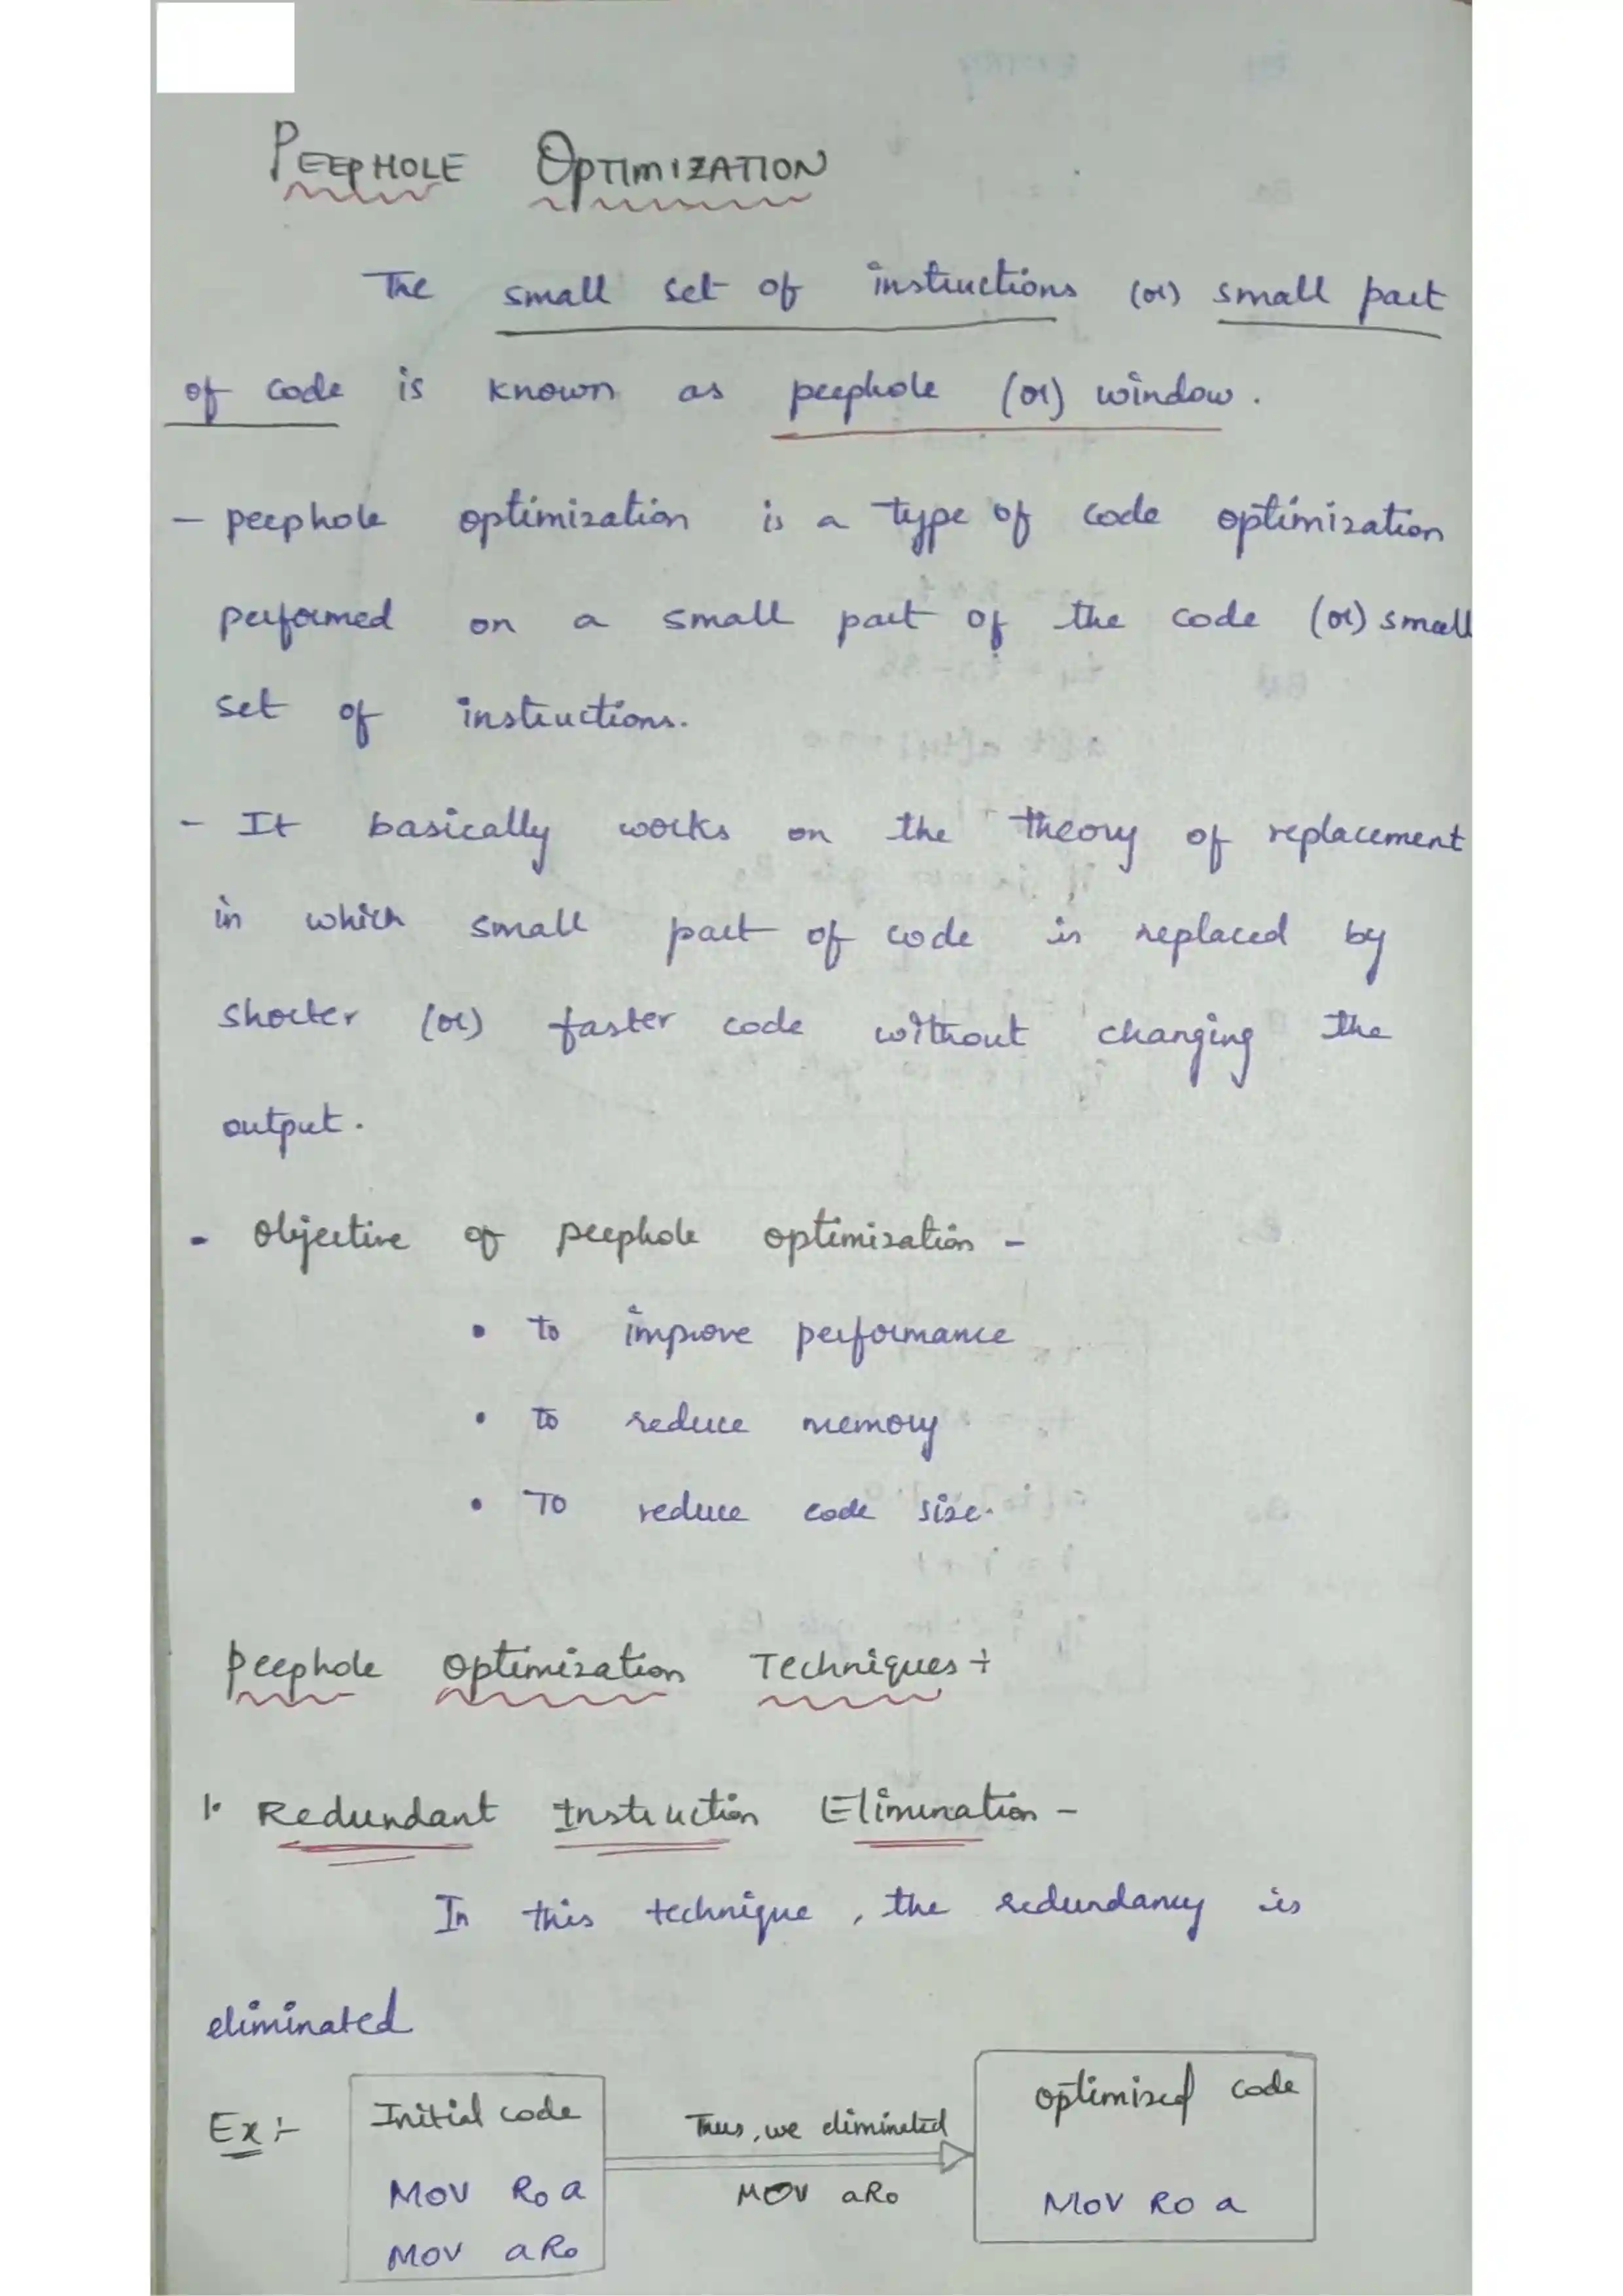 PEEPHOLE OPTIMIZATION
The small set of instructions (or) small part
of code is known as peephole (or) window.
- peephole optimization is a type of code optimization
performed on a small part of the code (or) small
set of instructions.
- It basically works on the theory of replacement
in which small part of code is replaced by
shorter (or) faster code without changing the
output.
- Objective of peephole optimization -
• to improve performance
• to reduce memory
• To reduce code size.
Peephole Optimization Techniques :-
1. Redundant Instruction Elimination -
In this technique, the redundancy is
eliminated
Ex :-
Initial code
MOV R0 a
MOV aR0
Thus, we eliminated
MOV aR0
optimized code
MOV R0 a